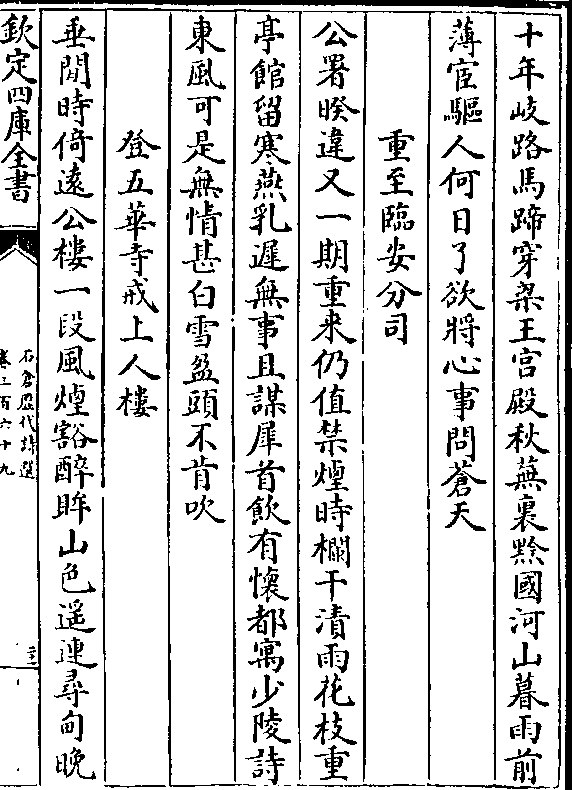 十年岐路馬蹄穿梁王宫殿秋蕪裏黲國河山暮雨前
薄宦驅人何日了欲將心事問蒼天
重至臨安分司
公署暌違又一期重来仍值禁煙時欄干漬雨花枝重
亭館留寒燕乳遲無事且謀犀首飲有懷都寓少陵詩
東風可是無情甚白雪盈頭不肯吹
登五華寺戒上人樓
垂閒時倚逺公樓一段風煙豁醉眸山色遥連尋甸晚
欽定四庫全書
石倉歴代詩選
卷三百六十九